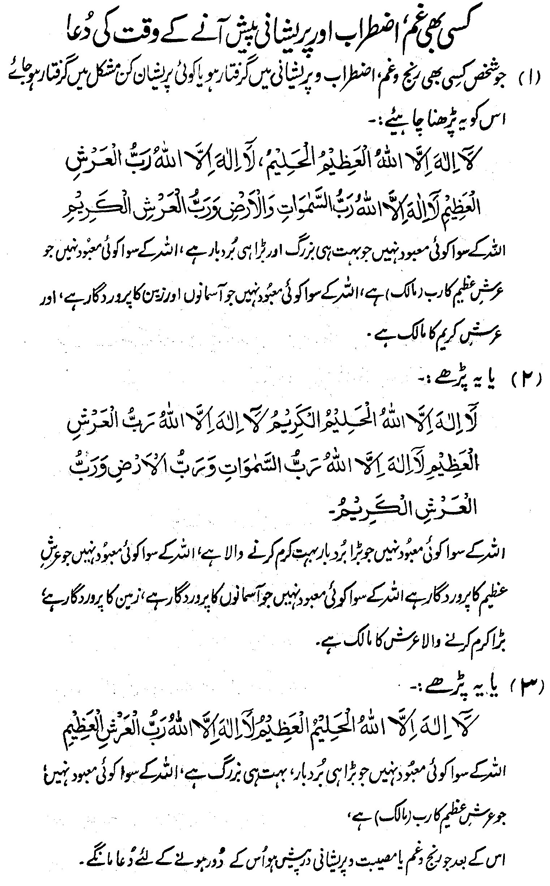 کسی بھی غم، اضطراب اور پریشانی پیش آنے کے وقت کی دُعا
(۱) جو شخص کسی بھی رنج و غم، اضطراب و پریشانی میں گرفتار ہو یا کوئی پریشان کن مشکل میں گرفتار ہو جائے
اس کو یہ پڑھنا چاہیئے :-
لَآ اِلٰهَ اِلَّا اللهُ الْعَظِيْمُ الْحَلِيْمُ، لَآ اِلٰهَ اِلَّا اللهُ رَبُّ الْعَرْشِ
الْعَظِيْمِ لَآ اِلٰهَ اِلَّا اللهُ رَبُّ السَّمٰوَاتِ وَالْاَرْضِ وَرَبُّ الْعَرْشِ الْكَرِيْمِ
اللہ کے سوا کوئی معبود نہیں جو بہت ہی بزرگ اور بڑا ہی بُردبار ہے، اللہ کے سوا کوئی معبود نہیں جو
عرشِ عظیم کا رب (مالک) ہے، اللہ کے سوا کوئی معبود نہیں جو آسمانوں اور زمین کا پروردگار ہے، اور
عرشِ کریم کا مالک ہے۔
(۲) یا یہ پڑھے :-
لَآ اِلٰهَ اِلَّا اللهُ الْحَلِيْمُ الْكَرِيْمُ لَآ اِلٰهَ اِلَّا اللهُ رَبُّ الْعَرْشِ
الْعَظِيْمِ لَآ اِلٰهَ اِلَّا اللهُ رَبُّ السَّمٰوَاتِ وَرَبُّ الْاَرْضِ وَرَبُّ
الْعَرْشِ الْكَرِيْمُ۔
اللہ کے سوا کوئی معبُود نہیں جو بڑا بُردبار بہت کرم کرنے والا ہے، اللہ کے سوا کوئی معبُود نہیں جو عرشِ
عظیم کا پروردگار ہے اللہ کے سوا کوئی معبُود نہیں جو آسمانوں کا پروردگار ہے، زمین کا پروردگار ہے،
بڑا کرم کرنے والا عرش کا مالک ہے۔
(۳) یا یہ پڑھے :-
لَآ اِلٰهَ اِلَّا اللهُ الْحَلِيْمُ الْعَظِيْمُ لَآ اِلٰهَ اِلَّا اللهُ رَبُّ الْعَرْشِ الْعَظِيْمِ
اللہ کے سوا کوئی معبُود نہیں جو بڑا ہی بُردبار، بہت ہی بزرگ ہے، اللہ کے سوا کوئی معبُود نہیں،
جو عرشِ عظیم کا رب (مالک) ہے،
اس کے بعد جو رنج و غم یا مصیبت و پریشانی درپیش ہو اُس کے دُور ہونے کے لئے دُعا مانگے۔